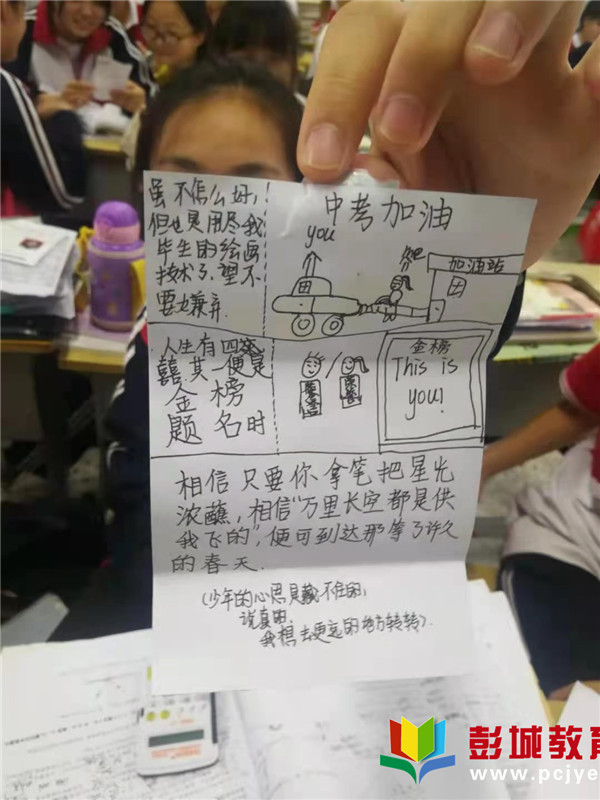 虽不怎么好,
但也是用尽我
毕生的绘画
技术了,望不
要嫌弃.
中考加油
you
加油站
人生有四大
囍,其一便是
金榜
题名时
金榜
This is
you!
相信只要你拿笔把星光
浓蘸,相信“万里长空都是供
我飞的”,便可到达那等了许久
的春天.
(少年的心思是藏不住的,
说真的,
我想去更远的地方转转).
彭城教育
www.pcjye